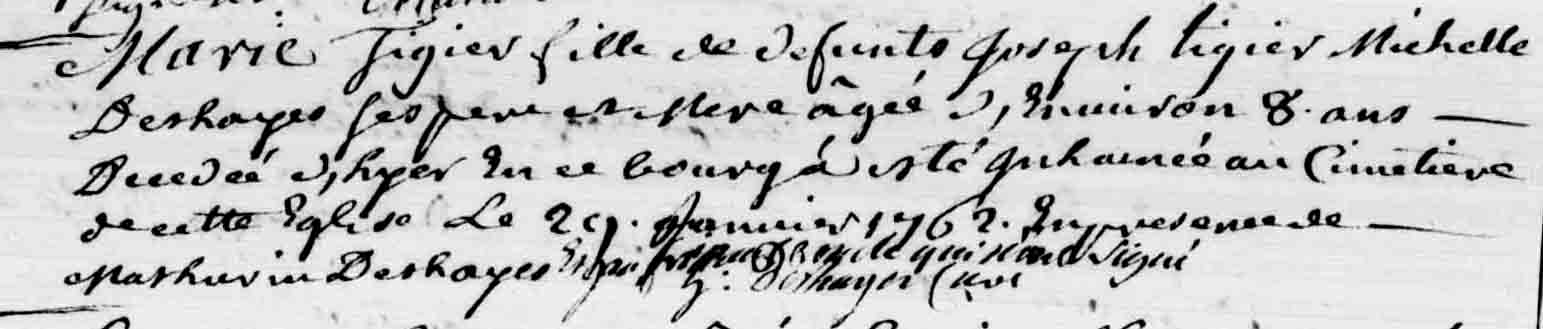 Marie Tigier fille de defunts Joseph tigier Michelle
Deshayes ses pere et Mere âgée d'Environ 8. ans
Decedée d'hyer En ce bourg à esté Inhumée au Cimetiere
de cette Eglise Le 29. Janvier 1762. En presence de
Mathurin Deshayes qui ont Signé
Deshayes Curé